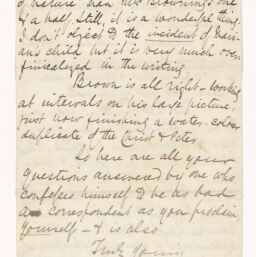 of nature than Mrs Browning's one
& a half. Still, it is a wonderful thing.
I don't object to the incident of Marian's
child but it is very much over
in the writing
Brown is all right - working
at intervals on his large picture -
just now finishing a water-colour
duplicate of the Christ & Peter
So here are all your
questions answered by one who
confesses himself to be as bad
a correspondent as you proclaim
yourself - & is also
Truly Yours